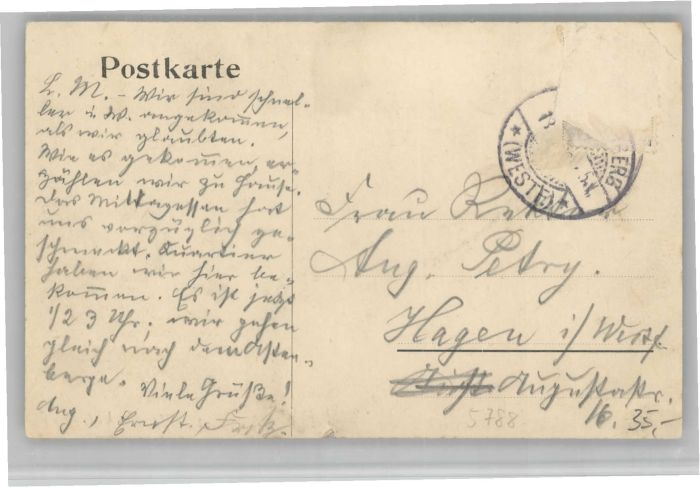 Postkarte
L. M. – Wir sind schnel-
ler i. W. angekommen,
als wir glaubten.
Wie es gekommen, er-
zählen wir zu Hause.
Das Mittagessen hat
uns vorzüglich ge-
schmeckt. Quartier
haben wir hier be-
kommen. Es ist jetzt
1/2 3 Uhr, wir gehen
gleich nach dem Asten-
berge. Viele Grüße!
Aug., Ernst. Fritz.
BERG
* (WESTF.) *
Frau Rektor
Aug. Petry.
Hagen i/Westf.
Augustastr.
16.
35,-
5788